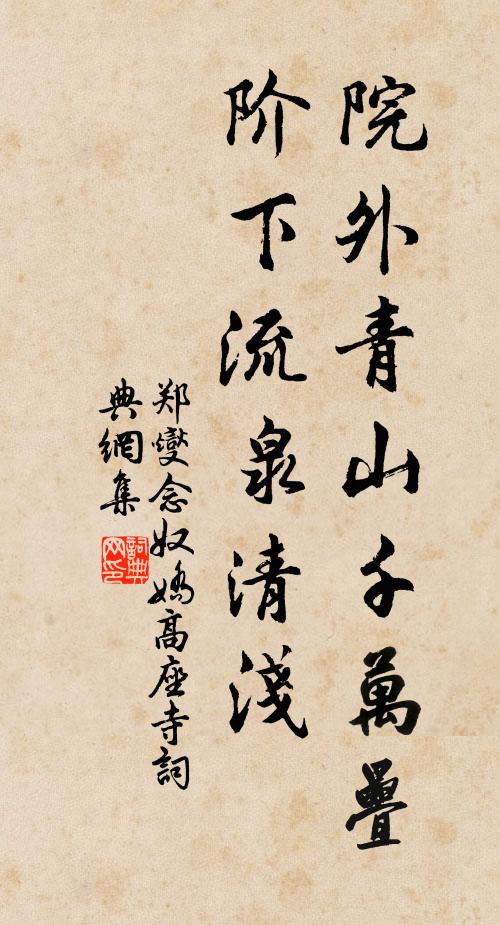 院外青山千萬疊
阶下流泉清淺
郑燮念奴嬌高座寺詞
典網集
詞典網印